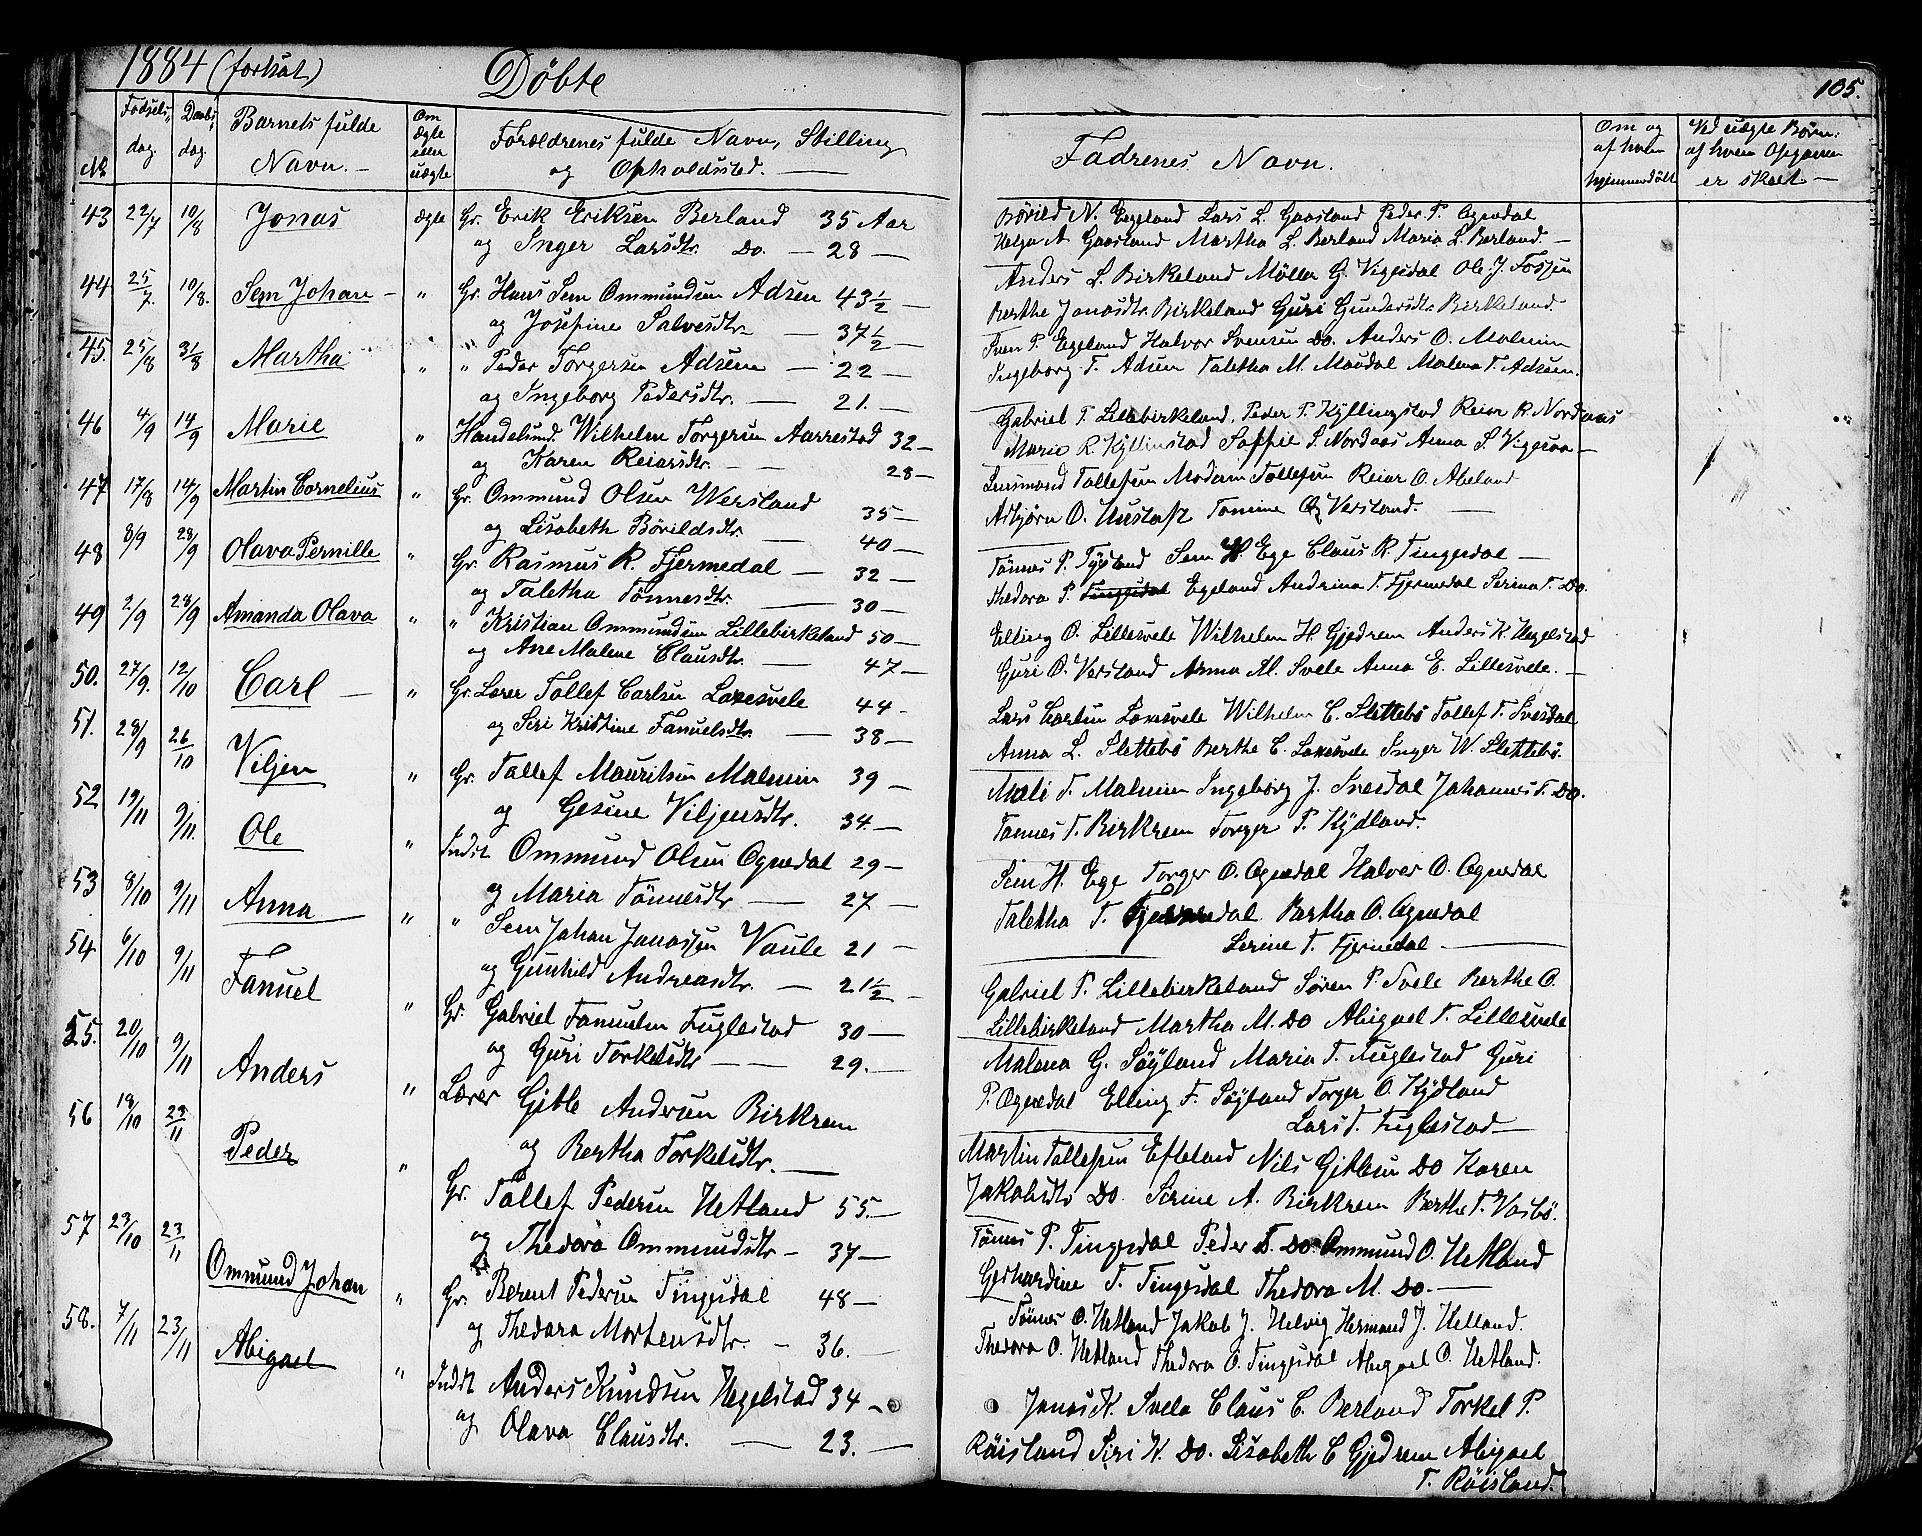 1884 (fortsat)
Döbte
105.
No
Födsels dag.
Daabs dag
Barnets fulde Navn.
Om ægte eller uægte
Forældrenes fulde Navn, Stilling og Opholdssted.
Fadrenes Navn.
Om og af hvem hjemmedöbt
Ved uægte Börn: af hvem Opgaven er skeet
43 22/7 10/8 Jonas ægte Gr. Erik Eriksen Berland 35 Aar
og Inger Larsdtr. Do. 28
Börild N. Egeland Lars L. Gaasland Peder P. Ognedal
Helga A Gaasland Martha L. Berland Maria L. Berland.
44 25/7. 10/8. Sem Johan " Gr. Hans Sem Ommundsen Adsen 43½
og Josefine Salvesdtr. 37½
Anders L. Birkeland Möller G. Vigesdal Ole J. Fossen
Berthe Jonasdtr. Birkeland Guri Gundersdtr. Birkeland.
45. 25/8 31/8 Martha " " Peder Torgersen Adsen 22
og Ingeborg Pedersdtr. 21.
Sven P. Egeland Halvor Svensen Do. Anders O. Malmin
Ingeborg T. Adsen Taletha M. Maudal Malena T. Adsen.
46 4/9 14/9 Marie " Handelsmd. Wilhelm Torgersen Aarrestad 32
og Karen Reiarsdtr. 28
Gabriel T. Lillebirkeland, Peder P. Kyllingstad Reiar R. Nordaas
Marie R. Kyllinstad Soffie S. Nordaas Anna S. Vigesaa
47 17/8 14/9 Martin Cornelius " Gr. Ommund Olsen Versland 35
og Lisabeth Börildsdtr. 40
Lensmand Tollefsen Madam Tollefsen Reiar O. Abeland
Asbjörn O. Tomine O. Versland.
48 8/9 28/9 Olava Pernille " Gr. Rasmus R. Fjermedal 32
og Taletha Tönnesdtr. 30
Tönnes P. Tysland Sem H. Ege Claus R. Tingesdal
Thedora P. Tingesdal Egeland Andrina T. Fjermedal Serina T. Do.
49 2/9 28/9 Amanda Olava " " Kristian Ommundsen Lillebirkeland 50
og Ane Malene Clausdtr. 47
Elling O. Lillesvele Wilhelm H. Gjedrem Anders K. Hegelstad
Guri O. Versland Anna M. Svele Anna E. Lillesvele.
50. 27/9. 12/10 Carl " Gr. Lærer Tollef Carlsen Laxesvele 44
og Seri Kristine Fanuelsdtr. 38
Lars Carlsen Laxesvele Wilhelm C. Slettebö Tollef T. Svesdal
Anna L. Slettebö Berthe C. Laxesvele Inger W. Slettebö.
51. 28/9 26/10 Viljen " Gr. Tollef Mauritsen Malmin 39
og Gesine Viljensdtr. 34.
Mali T. Malmin Ingeborg J. Svesdal Johannes T. Do.
Tönnes T. Birkrem Torger P. Kydland.
52 19/11 9/11. Ole " Indst Ommund Olsen Ognedal 29
og Maria Tönnesdtr 27
Sem H. Ege Torger O. Ognedal Halvor O. Ognedal
Taletha T. Fjermedal Bertha O. Ognedal
Serine T. Fjermedal
53 8/10 9/11 Anna " " Sem Johan Janassen Vaule 21
og Gunhild Andreasdtr. 21½
Gabriel T. Lillebirkeland Sören P. Svele Berthe O.
Lillebirkeland Martha M. Do Abigael T. Lillesvele
54 6/10 9/11 Fanuel " Gr. Gabriel Fanuelsen Fuglestad 30
og Guri Torkelsdtr 29.
Malena G. Söyland Maria T. Fuglestad Guri
P. Ognedal Elling F. Söyland Torger O. Kydland
Lars T. Fuglestad
55. 20/10 9/11 Anders " Lærer Gitle Andersen Birkrem
og Bertha Torkelsdtr.
Martin Tollefsen Efteland Nils Gitlesen Do Karen
Jakobsdtr Do. Serine A. Birkrem Berthe T. Vasbö.
56 18/10 23/11 Peder " Gr. Tollef Pedersen Hetland 55.
og Thedora Ommundsdtr 37
Tönnes P. Tingesdal Peder T. Do. Ommund O. Hetland
Gerhardine T. Tingesdal Thedora M. Do.
57 23/10 23/11 Ommund Johan " Gr. Berent Pedersen Tingesdal 48
og Thedora Mortensdtr. 36.
Tönnes O. Hetland Jakob J. Helvig Hermand J. Hetland.
Thedora O. Hetland Thedora O. Tingesdal Abigael O. Hetland.
58. 7/11 23/11 Abigael " Indst Anders Knudsen Hegelstad 34
og Olava Clausdtr. 23.
Jonas K. Svela Claus C. Berland Torkel P.
Röisland Seri K. Do. Lisabeth C Gjedrem Abigael
T. Röisland.